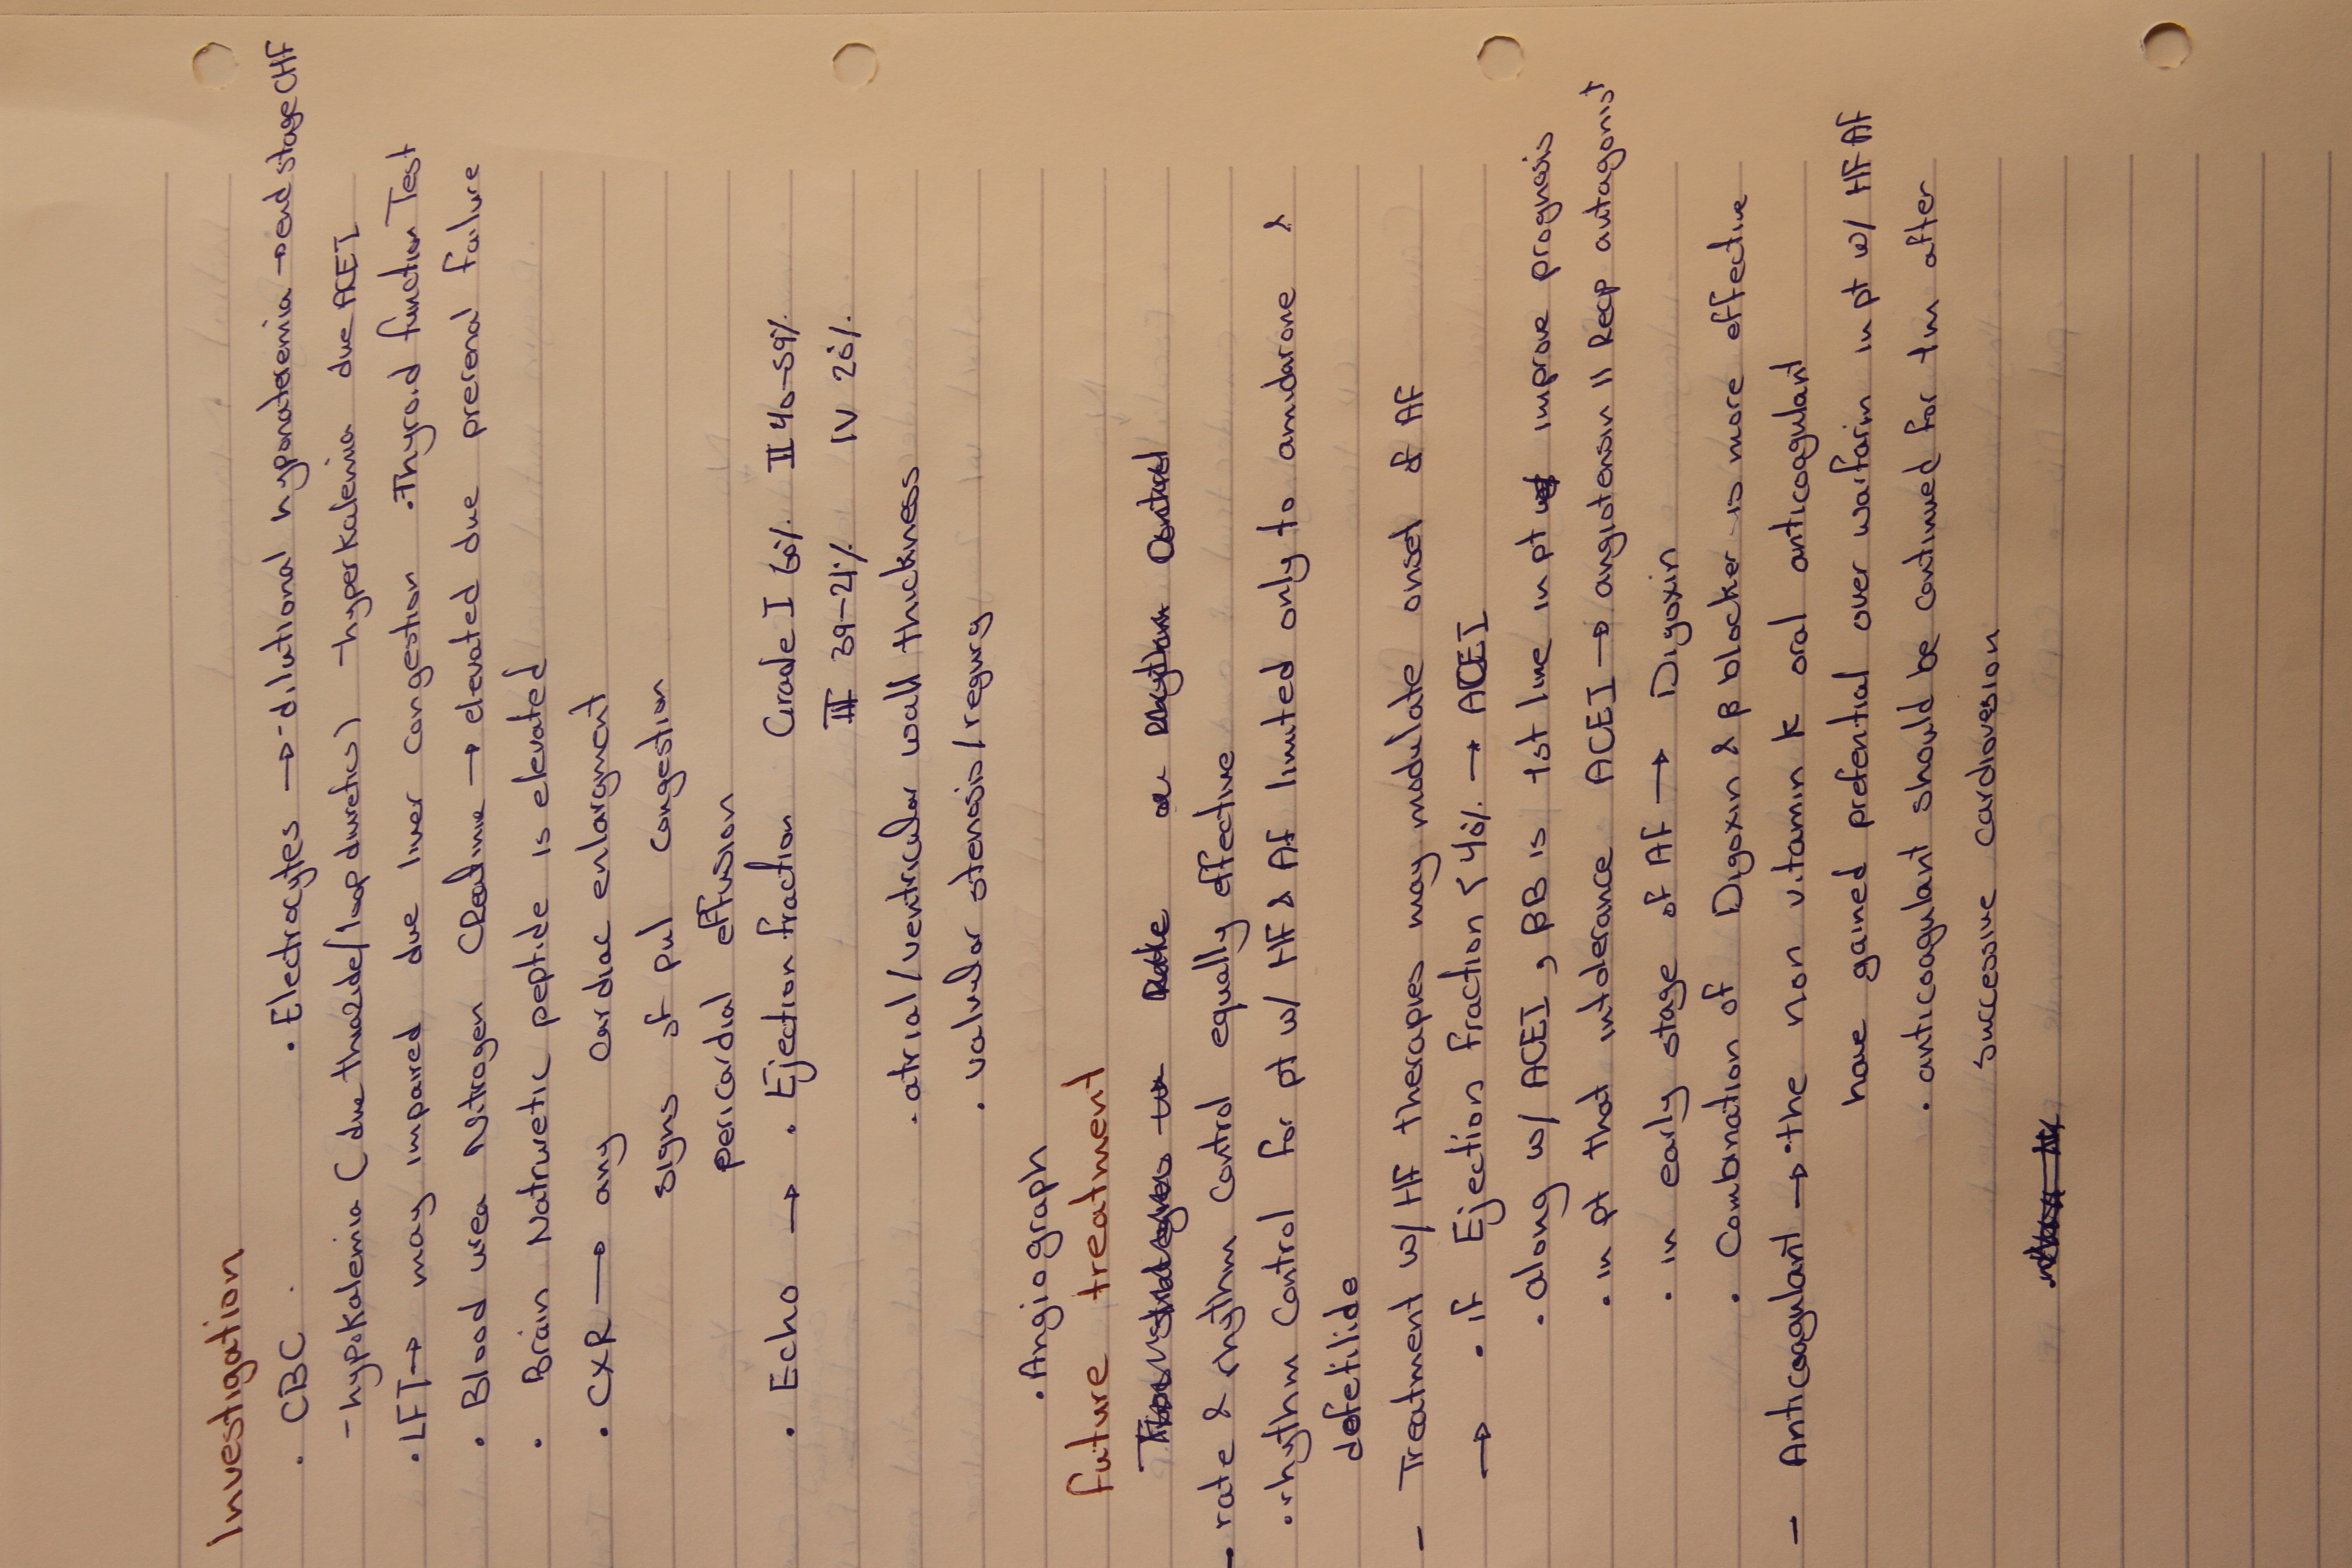 Investigation
. CBC . . Electrocytes → - dilutional hyponateremia → end stage CHF
- hypokalemia (due thiazide/loop diuretics) - hyperkalemia due ACEI
. LFT → may impaired due liver congestion . Thyroid function Test
. Blood urea Nitrogen Creatinine → elevated due prerenal failure
. Brain Natriuretic peptide is elevated
. CXR → any cardiac enlargment
signs of pul congestion
pericardial effusion
. Echo → . Ejection fraction Grade I 60% II 40-59%
III 39-21% IV 20%
. atrial/ventricular wall thickness
. valvular stenosis/regurg
. Angiograph
future treatment
Rate or Rhythm Control
- rate & rhythm control equally effective
. rhythm control for pt w/ HF & AF limited only to amidarone &
defetilide
- Treatment w/ HF therapies may modulate onset of AF
→ . if Ejection fraction < 40% → ACEI
. along w/ ACEI, βB is 1st line in pt improve prognosis
. in pt that intolerance ACEI → angiotensin II Recp antagonist
. in early stage of AF → Digoxin
. Combination of Digoxin & β blocker is more effective
- Anticoagulant → . the non vitamin k oral anticoagulant
have gained prefential over warfarin in pt w/ HF AF
. anticoagulant should be continued for 1m after
successive cardiovesion